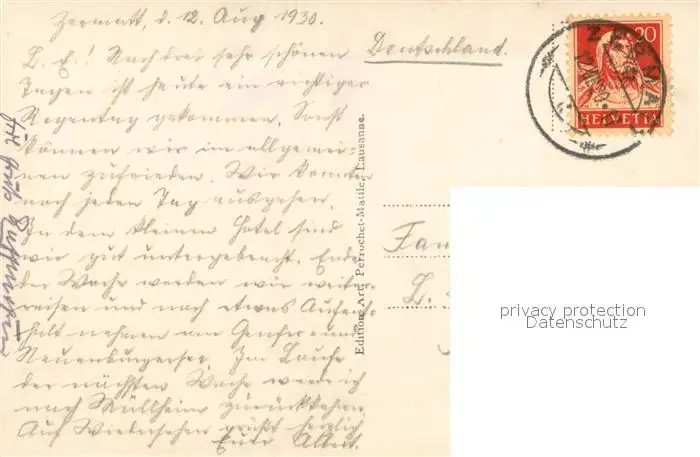 Zermatt, d. 12. Aug 1930.
L. E.! Nach drei sehr schönen
Tagen ist heute ein richtiger
Regentag gekommen. Sonst
können wir im allgemei-
nen zufrieden. Wir konnten
noch jeden Tag ausgehen.
In dem kleinen Hotel sind
wir gut untergebracht. Ende
der Woche werden wir weiter-
reisen und noch etwas Aufent-
halt nehmen am Genfer- und
Neuenburgersee. Im Laufe
der nächsten Woche werde ich
nach Müllheim zurückkehren.
Auf Wiedersehen grüßt herzlich
Euer Albert.
Deutschland.
20
HELVETIA
ZERMATT
Edition Art. Perrochet-Matile, Lausanne.
Fam
L.
privacy protection
Datenschutz